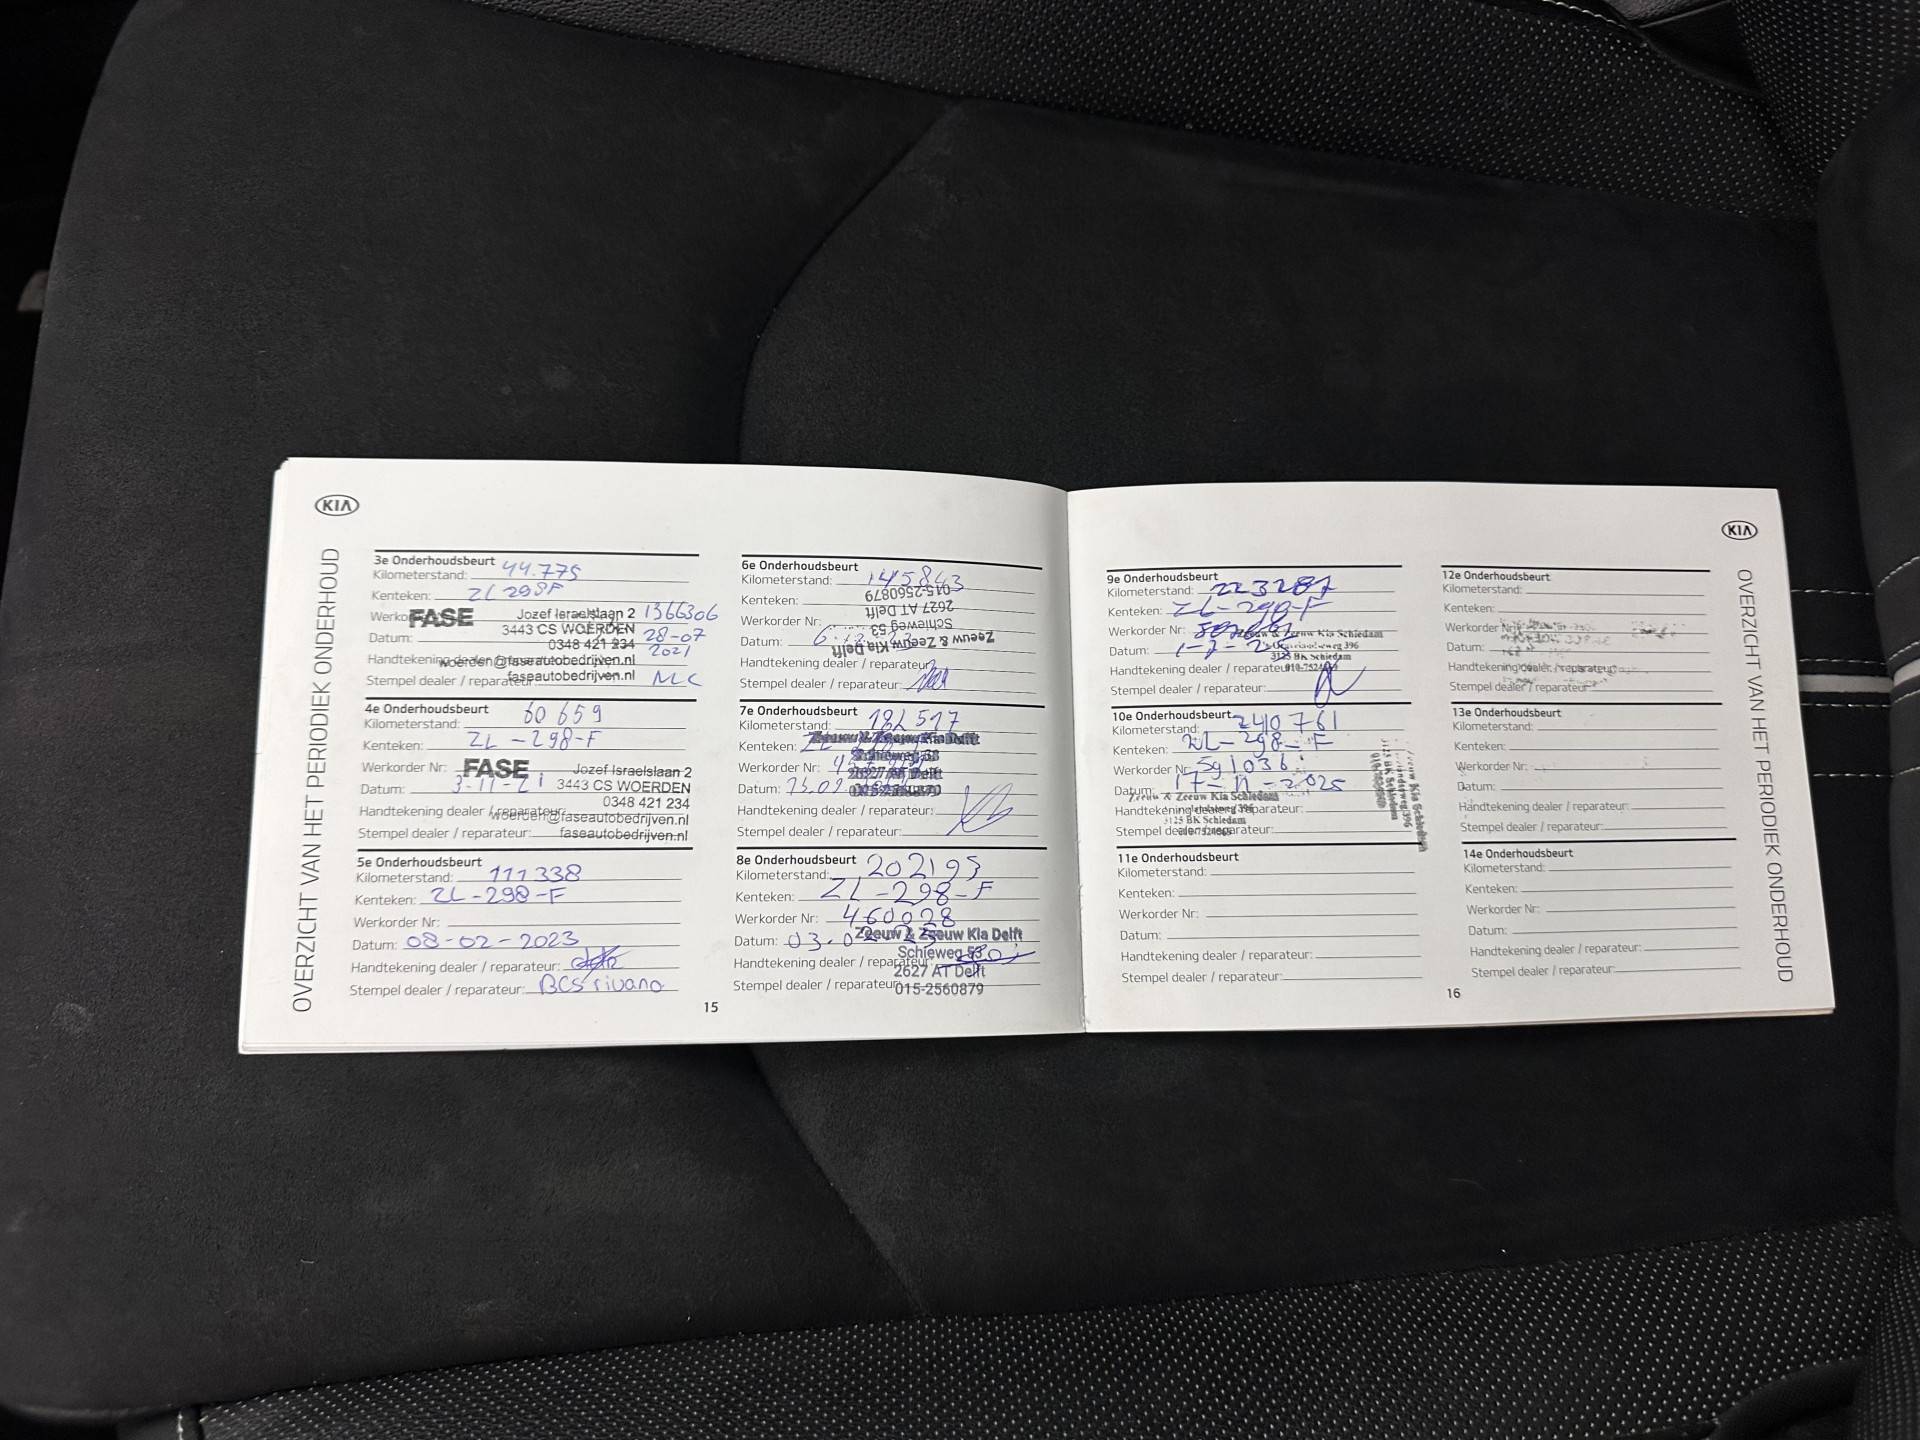 KIA
OVERZICHT VAN HET PERIODIEK ONDERHOUD
3e Onderhoudsbeurt
Kilometerstand: 44.775
Kenteken: ZL298F
FASE Jozef Israelslaan 2 1366306
3443 CS WOERDEN
Datum: 28-07
0348 421 234 2021
Handtekening dealer / reparateur:
woerden@faseautobedrijven.nl
faseautobedrijven.nl
Stempel dealer / reparateur:
4e Onderhoudsbeurt
Kilometerstand: 60 659
Kenteken: ZL-298-F
Werkorder Nr:
FASE Jozef Israelslaan 2
Datum: 3-11-21
3443 CS WOERDEN
0348 421 234
Handtekening dealer / reparateur:
woerden@faseautobedrijven.nl
Stempel dealer / reparateur:
faseautobedrijven.nl
5e Onderhoudsbeurt
Kilometerstand: 111338
Kenteken: ZL-298-F
Werkorder Nr:
Datum: 08-02-2023
Handtekening dealer / reparateur:
Stempel dealer / reparateur: BCS rivano
6e Onderhoudsbeurt
Kilometerstand: 145843
Kenteken:
Werkorder Nr:
Datum:
Zeeuw & Zeeuw Kia Delft
Schieweg 53
2627 AT Delft
015-2560879
Handtekening dealer / reparateur:
Stempel dealer / reparateur:
7e Onderhoudsbeurt
Kilometerstand:
Kenteken:
Zeeuw & Zeeuw Kia Delft
Schieweg 53
Werkorder Nr:
2627 AT Delft
Datum:
015-2560879
Handtekening dealer / reparateur:
Stempel dealer / reparateur:
8e Onderhoudsbeurt
Kilometerstand: 202193
Kenteken: ZL-298-F
Werkorder Nr: 460028
Datum:
Zeeuw & Zeeuw Kia Delft
Schieweg 53
Handtekening dealer / reparateur:
2627 AT Delft
Stempel dealer / reparateur:
015-2560879
15
KIA
OVERZICHT VAN HET PERIODIEK ONDERHOUD
9e Onderhoudsbeurt
Kilometerstand: 223287
Kenteken: ZL-298-F
Werkorder Nr:
Zeeuw & Zeeuw Kia Schiedam
Datum:
3125 BK Schiedam
Handtekening dealer / reparateur:
Stempel dealer / reparateur:
10e Onderhoudsbeurt
Kilometerstand: 240761
Kenteken: ZL-298-F
Werkorder Nr: 591036
Datum: 17-11-2025
Zeeuw & Zeeuw Kia Schiedam
Handtekening dealer / reparateur:
3125 BK Schiedam
Stempel dealer / reparateur:
11e Onderhoudsbeurt
Kilometerstand:
Kenteken:
Werkorder Nr:
Datum:
Handtekening dealer / reparateur:
Stempel dealer / reparateur:
12e Onderhoudsbeurt
Kilometerstand:
Kenteken:
Werkorder Nr:
Datum:
Handtekening dealer / reparateur:
Stempel dealer / reparateur:
13e Onderhoudsbeurt
Kilometerstand:
Kenteken:
Werkorder Nr:
Datum:
Handtekening dealer / reparateur:
Stempel dealer / reparateur:
14e Onderhoudsbeurt
Kilometerstand:
Kenteken:
Werkorder Nr:
Datum:
Handtekening dealer / reparateur:
Stempel dealer / reparateur:
16